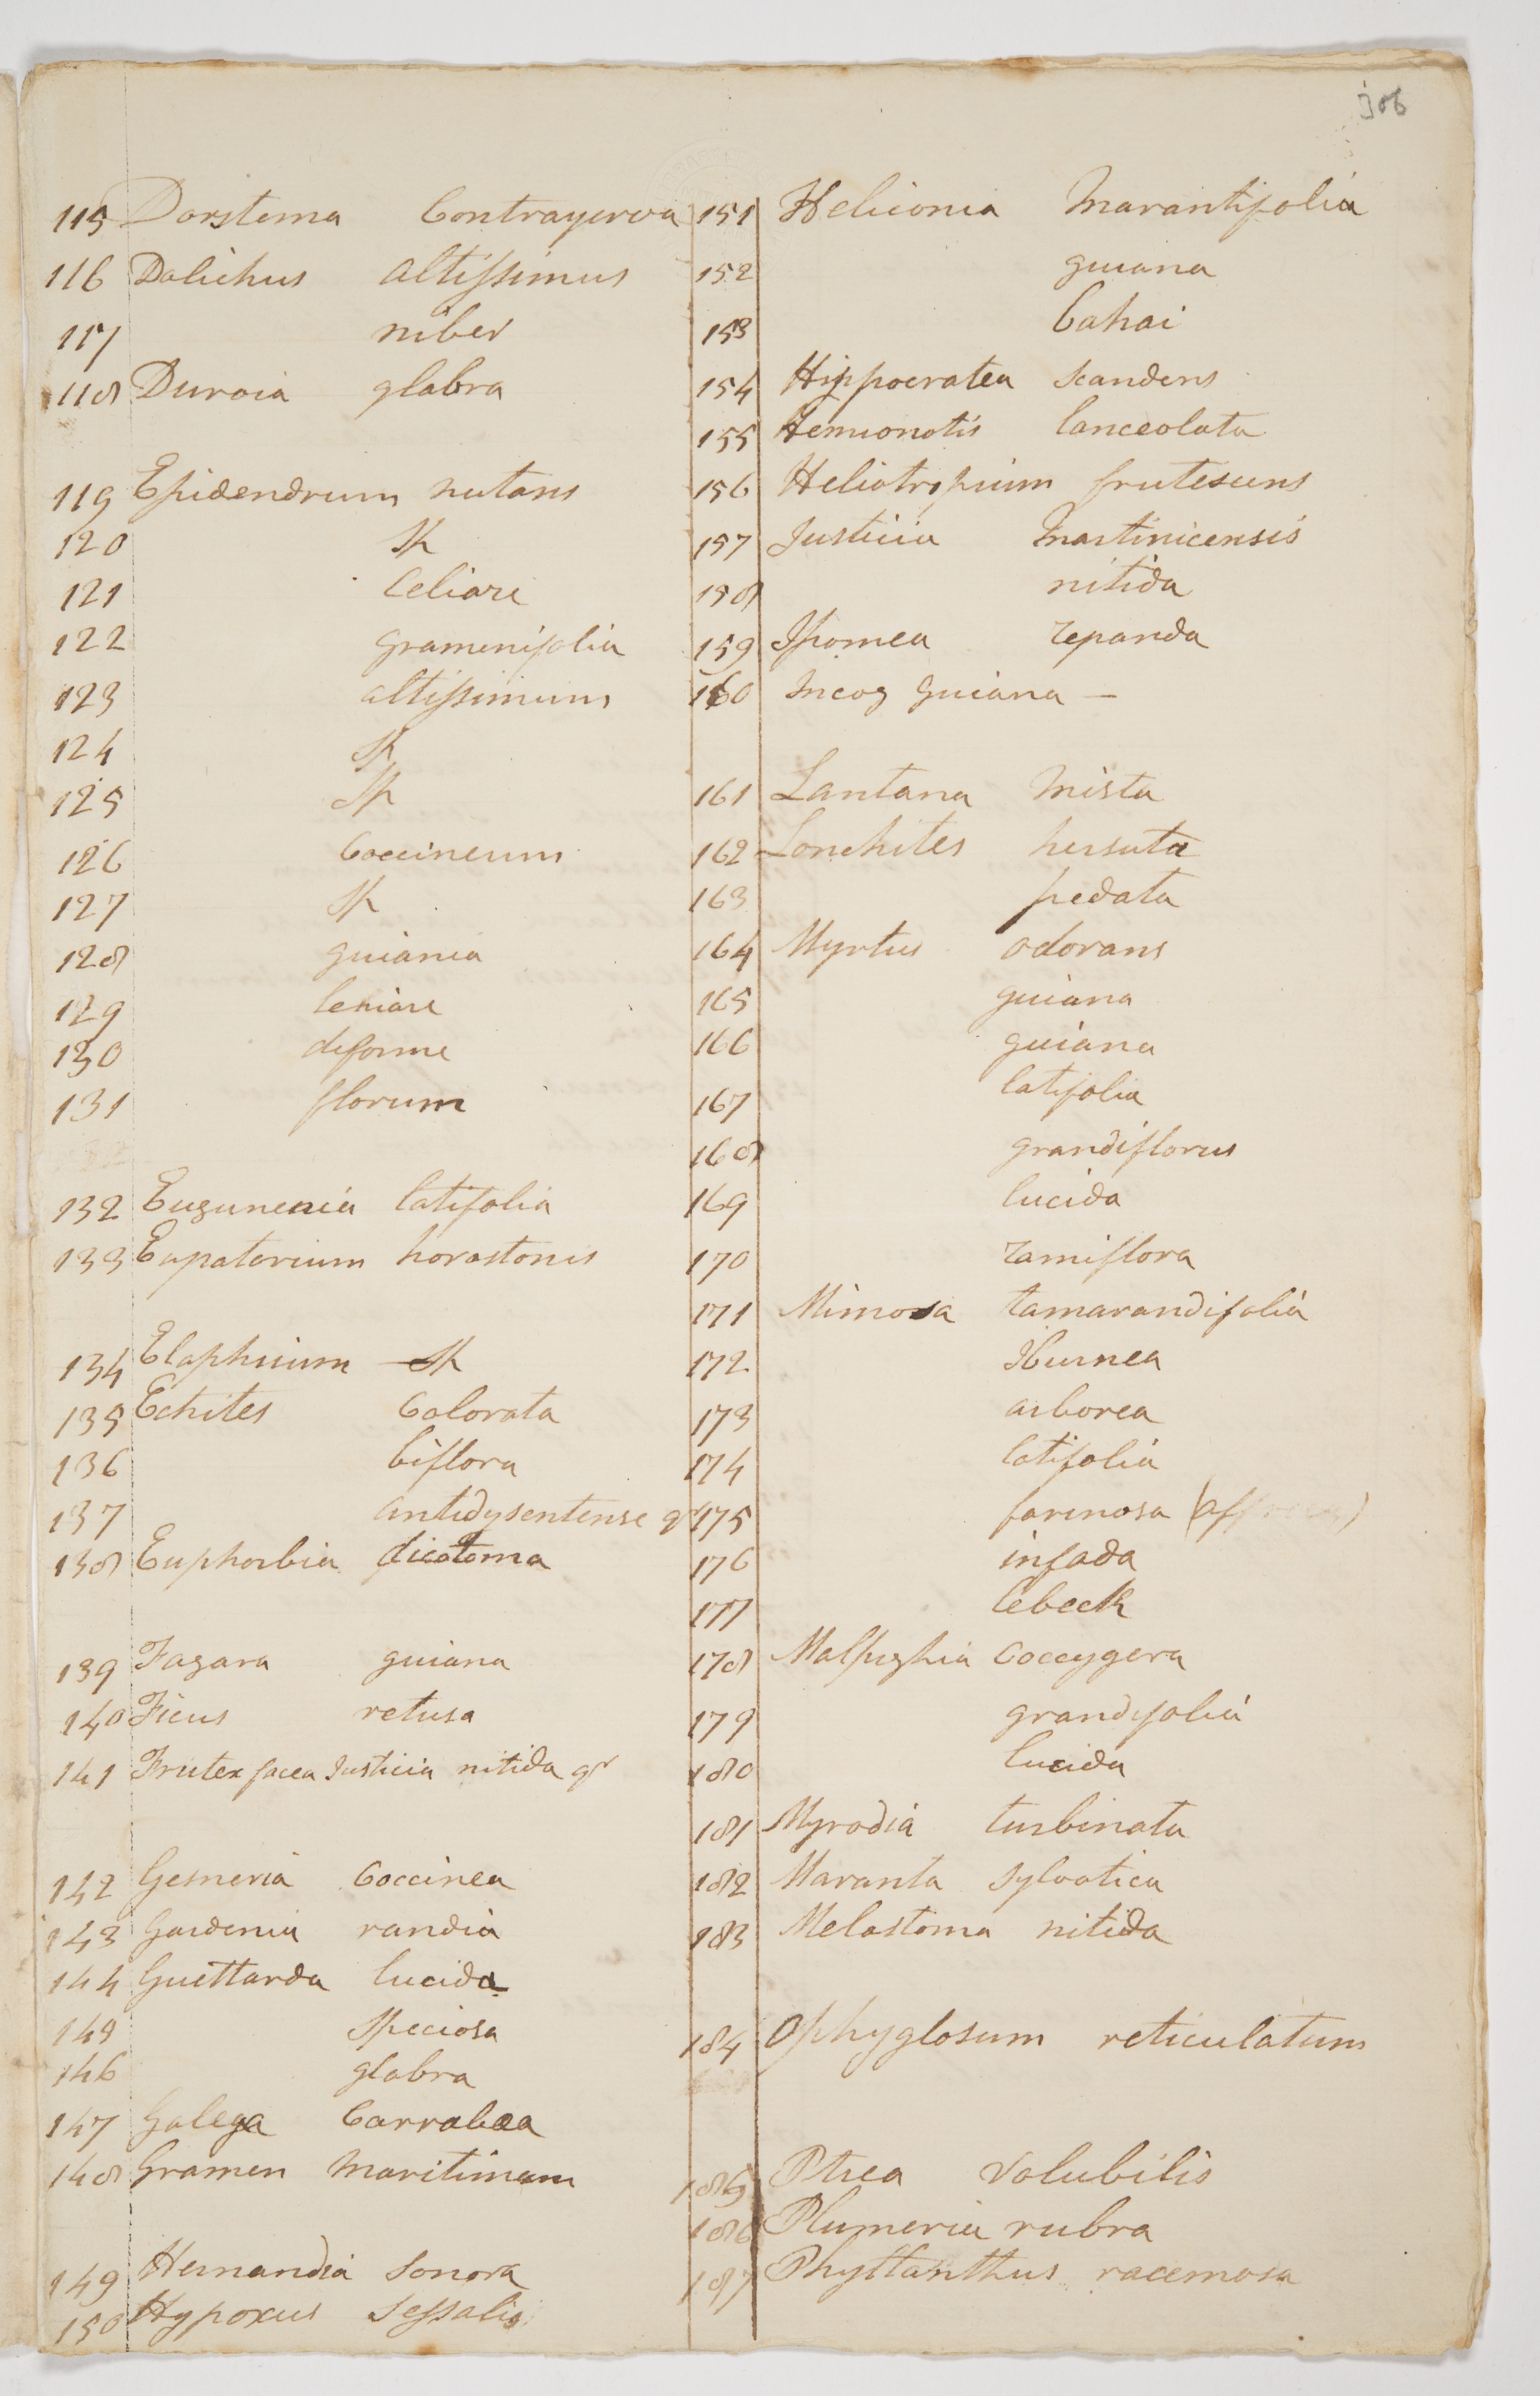 306
115 Dorstema Contrayerva
116 Dolichus altissimus
117 niber
118 Duroia glabra
119 Epidendrum nutans
120 Sp
121 Celiare
122 gramenifolia
123 altissimum
124 Sp
125 Sp
126 Coccineum
127 Sp
128 guiania
129 leniare
130 deforme
131 florum
132 Eugunenia latifolia
133 Eupatorium horastonis
134 Elaphrium Sp
135 Echites Colorata
136 biflora
137 antidysentense qr
138 Euphorbia dicotoma
139 Fagara guiana
140 Ficus retusa
141 Frutex facea Justicia nitida qr
142 Gesneria Coccinea
143 Gardenia randia
144 Guettarda lucida
145 Speciosa
146 glabra
147 Galega Carrabea
148 Gramen maritimum
149 Hernandia Sonora
150 Hypoxus Sessalis
151 Heliconia Marantifolia
152 guiana
153 Cahai
154 Hippocratea Scandens
155 Hemionotis lanceolata
156 Heliotropium frutescens
157 Justicia Martinicensis
158 nitida
159 Ipomea repanda
160 Incog guiana —
161 Lantana Mista
162 Lonchites hersuta
163 pedata
164 Myrtus odorans
165 guiana
166 guiana
167 latifolia
168 grandiflorus
169 lucida
170 ramiflora
171 Mimosa tamarandifolia
172 Iburnea
173 arborea
174 latifolia
175 farinosa
176 infada
177 lebeck
178 Malpighia Coccygera
179 grandifolia
180 lucida
181 Myrodia turbinata
182 Maranta Sylvatica
183 Melastoma nitida
184 Ophyglosum reticulatum
185 Ptrea Volubilis
186 Plumeria rubra
187 Phyttanthus racemosa